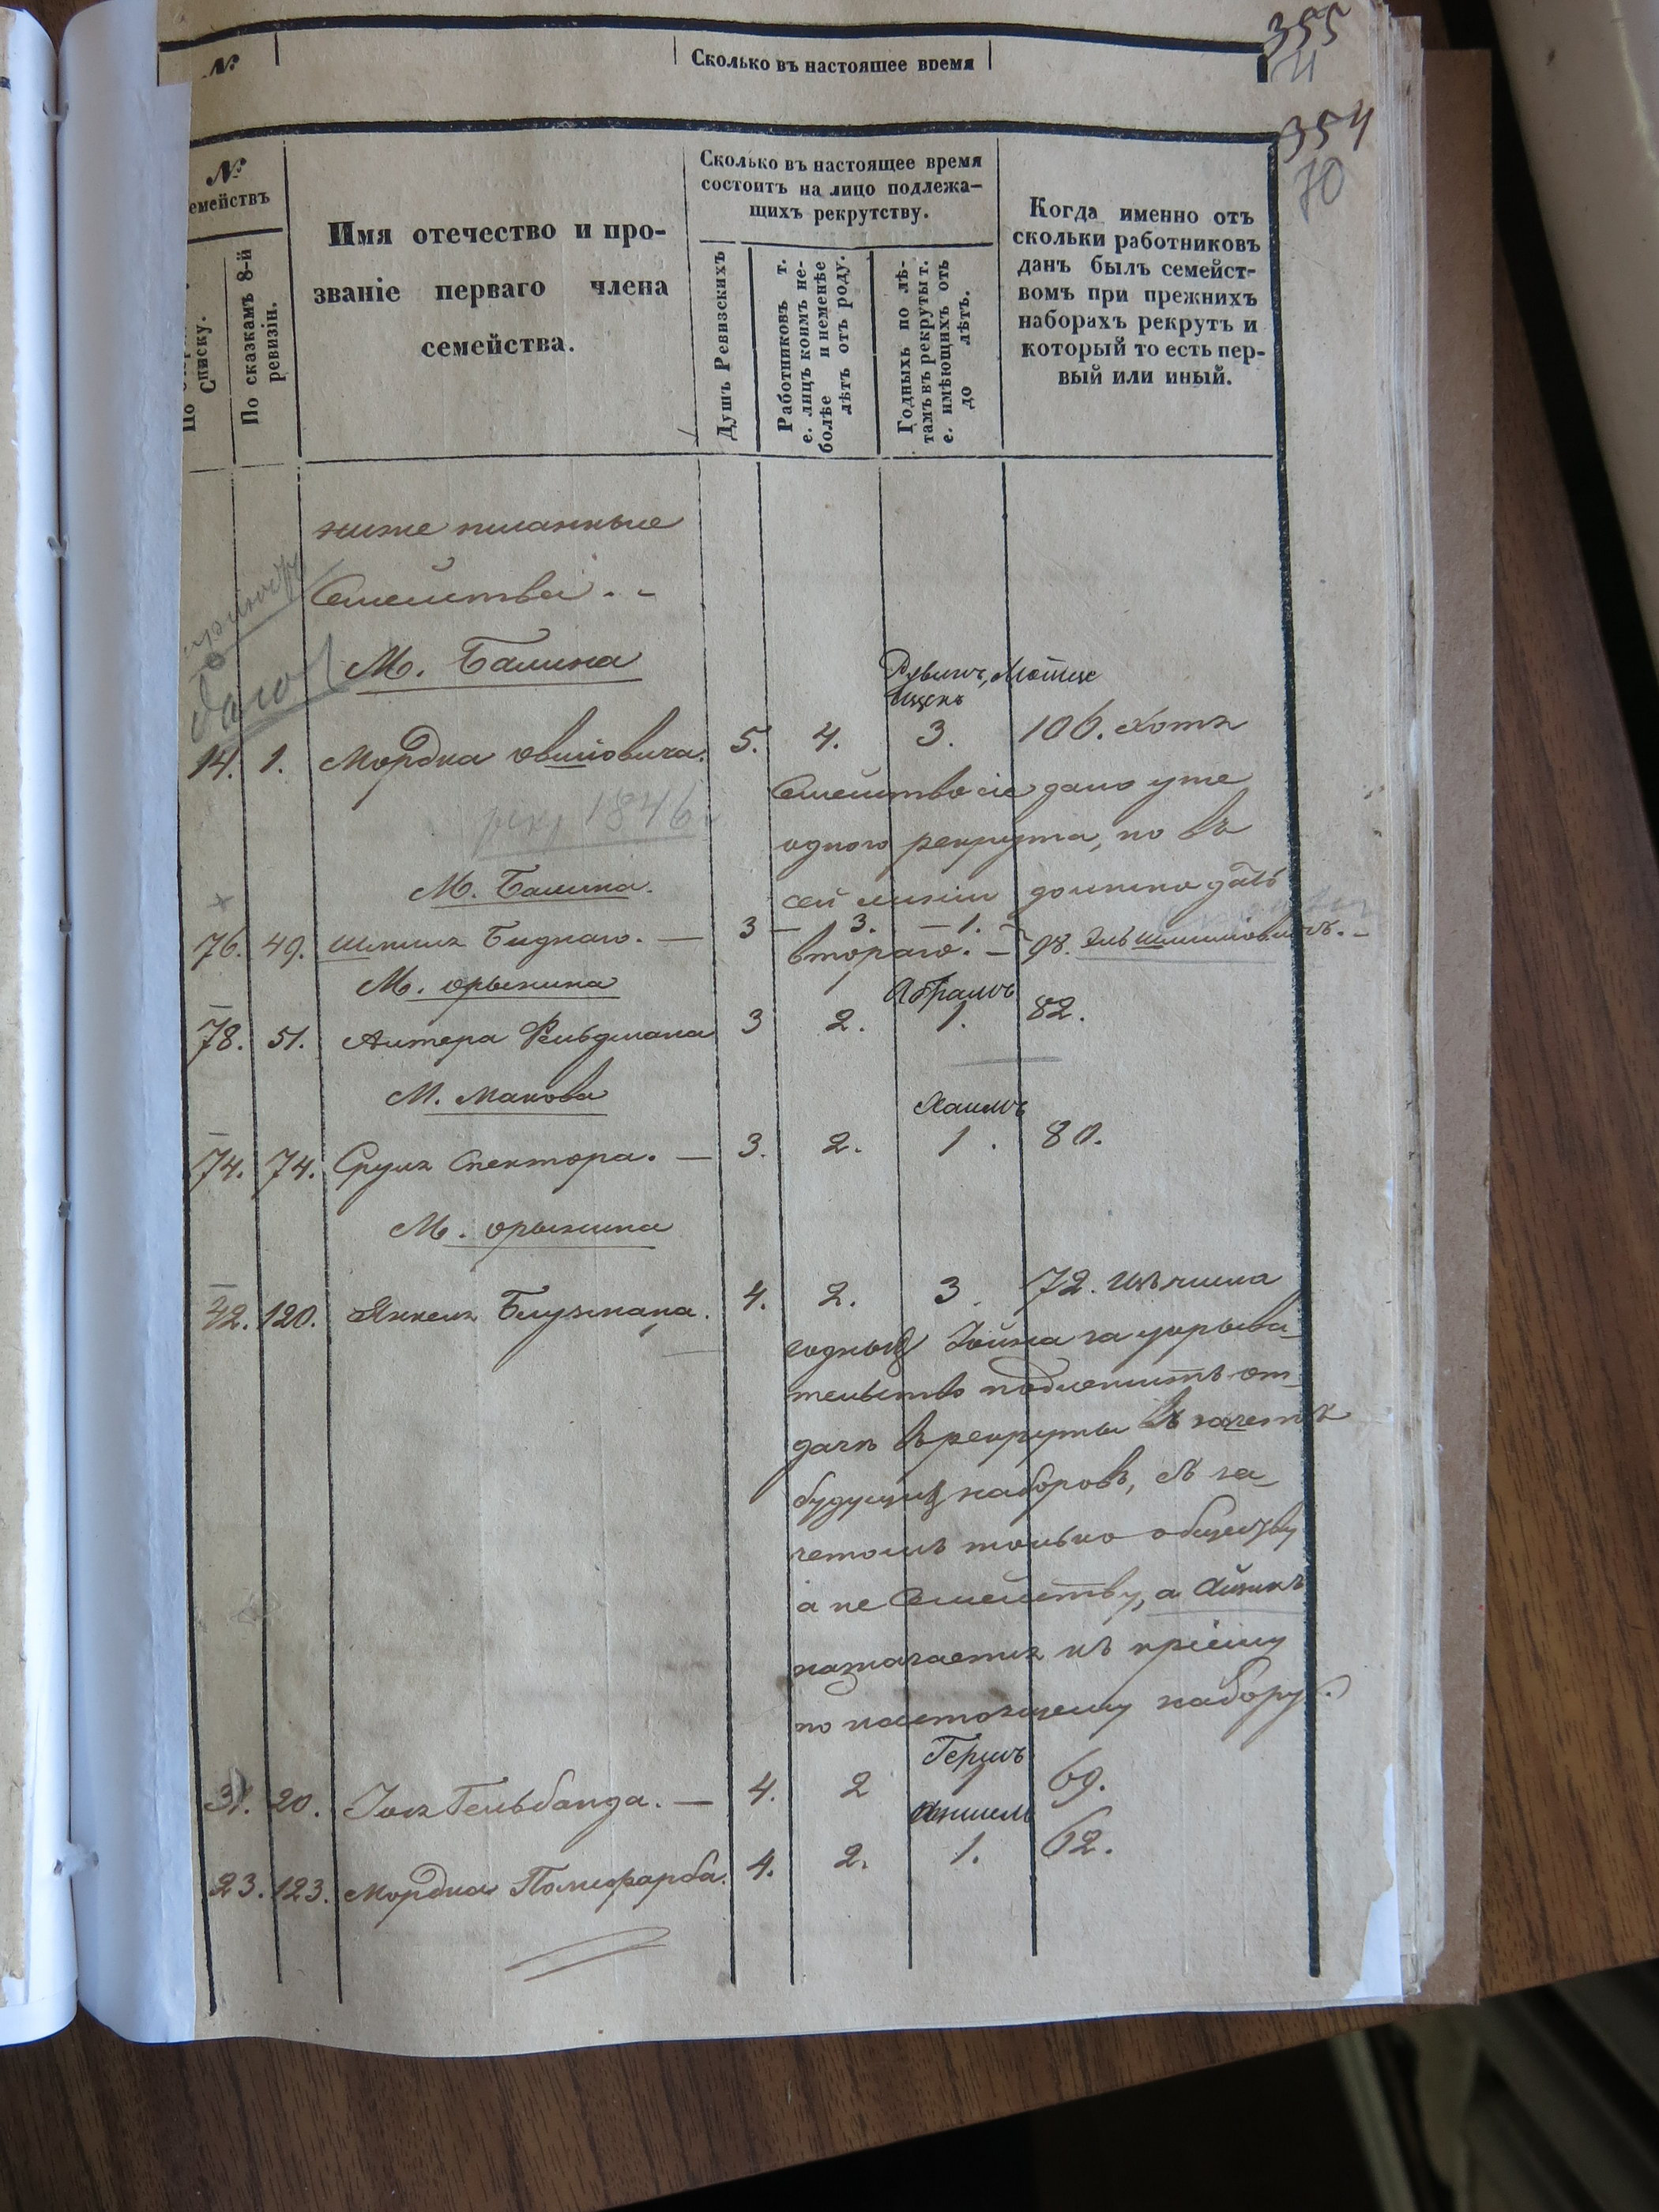 №
Сколько въ настоящее время
355
11
354
10
№
емействъ
Списку.
По сказкамъ 8-й
ревизіи.
Имя отечество и про-
званіе перваго члена
семейства.
Сколько въ настоящее время
состоитъ на лицо подлежа-
щихъ рекрутству.
Душъ Ревизскихъ
Работниковъ т.
е. лицъ коимъ не-
болѣе и неменѣе
лѣтъ отъ роду.
Годныхъ по лѣ-
тамъ въ рекруты т.
е. имѣющихъ отъ
до лѣтъ.
Когда именно отъ
скольки работниковъ
данъ былъ семейст-
вомъ при прежнихъ
наборахъ рекрутъ и
который то есть пер-
вый или иный.
ниже писанные
Семейства. -
М. Балина
Рувинъ, Мошке
Ицекъ
14. 1. Мордка Овшіовича. 5. 4. 3. 106. Хотя
Семейство сіе дало уже
рек 1846
одного рекрута, но въ
М. Балина.
сей линіи должно дать
76. 49. Шмиля Биднаго. — 3 — 3. — 1.
втораго. — 98.
М. Орынина
Абрамъ
78. 51. Алтера Фельдмана 3 2. 1. 82.
М. Макова
Хаимъ
74. 74. Сруля Спектора. — 3. 2. 1. 80.
М. Орынина
42. 120. Янкеля Блузмана. 4. 2. 3. 72. Изъ числа
годныхъ Іойна за укрыва-
тельство подлежитъ от-
дачѣ въ рекруты въ зачетъ
будущихъ наборовъ, съ за-
четомъ только обществу
а не Семейству, а Айзикъ
назначается къ пріему
по настоящему набору.
Гершъ
31. 20. Іося Гельбанда. — 4. 2 1 69.
Аншель
23. 123. Мордка Помефарба. 4. 2. 1. 62.